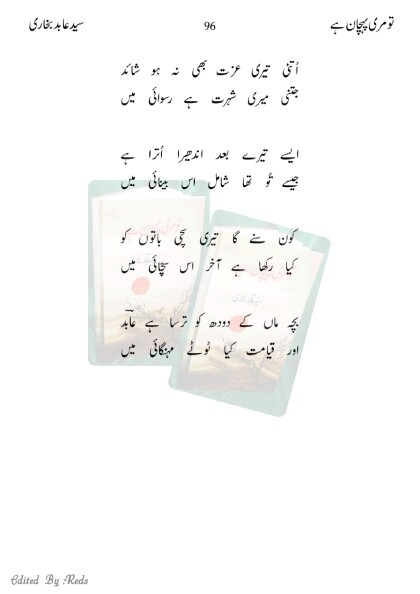 تو مری پہچان ہے 96 سید عابد بخاری
اُتنی تیری عزت بھی نہ ہو شائد
جتنی میری شہرت ہے رسوائی میں
ایسے تیرے بعد اندھیرا اُترا ہے
جیسے تُو تھا شامل اس بینائی میں
کون سنے گا تیری سچی باتوں کو
کیا رکھا ہے آخر اس سچّائی میں
بچہ ماں کے دودھ کو ترسا ہے عابدؔ
اور قیامت کیا ٹوٹے مہنگائی میں
Edited By Reds